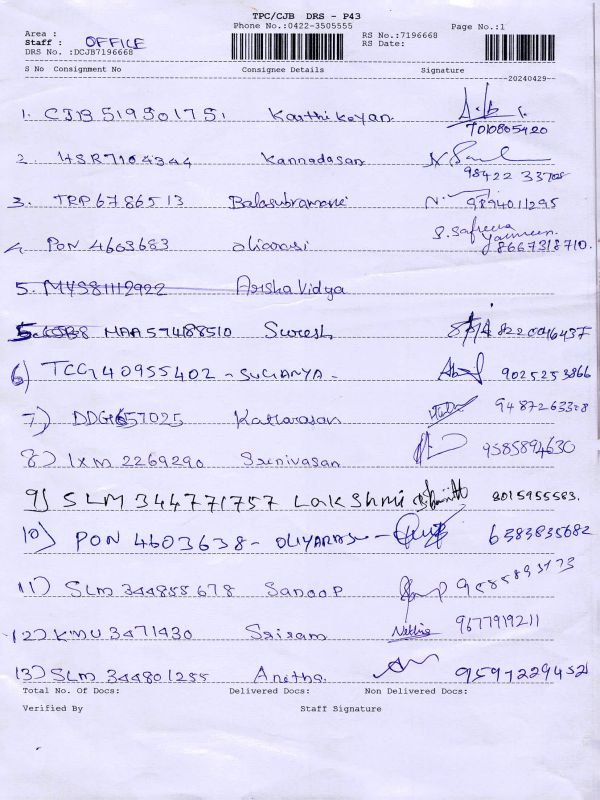 TPC/CJB DRS - P43
Phone No.:0422-3505555
Page No.:1
Area :
Staff : OFFICE
DRS No. :DCJB7196668
RS No.:7196668
RS Date:
S No Consignment No Consignee Details Signature
20240429
1. CJB 519501751 Karthikeyan 7010805420
2. HSR7164344 Kannadasan 98422 33708
3. TRP6786513 Balasubramani 9894011295
4. PON 4603683 oliarasi S. Safreena Yasmeen 8667318710.
5. MYS81112922 Ariska Vidya
5. MAA 57488510 Suresh 8220016437
6) TCG140955402 - SUGANYA - 9025253866
7) DDG1657025 Katharasan 9487263328
8) IXM 2269290 Srinivasan 9585894630
9) SLM 344771757 Lakshmi 8015955583.
10) PON 4603638 - OLIYARASI - 6383835682
11) SLM 344855678 Sanoop 9585893173
12) KMU 3471430 Sriram Nethra 9677919211
13) SLM 344801255 Anitha. 9597229452
Total No. Of Docs: Delivered Docs: Non Delivered Docs:
Verified By Staff Signature